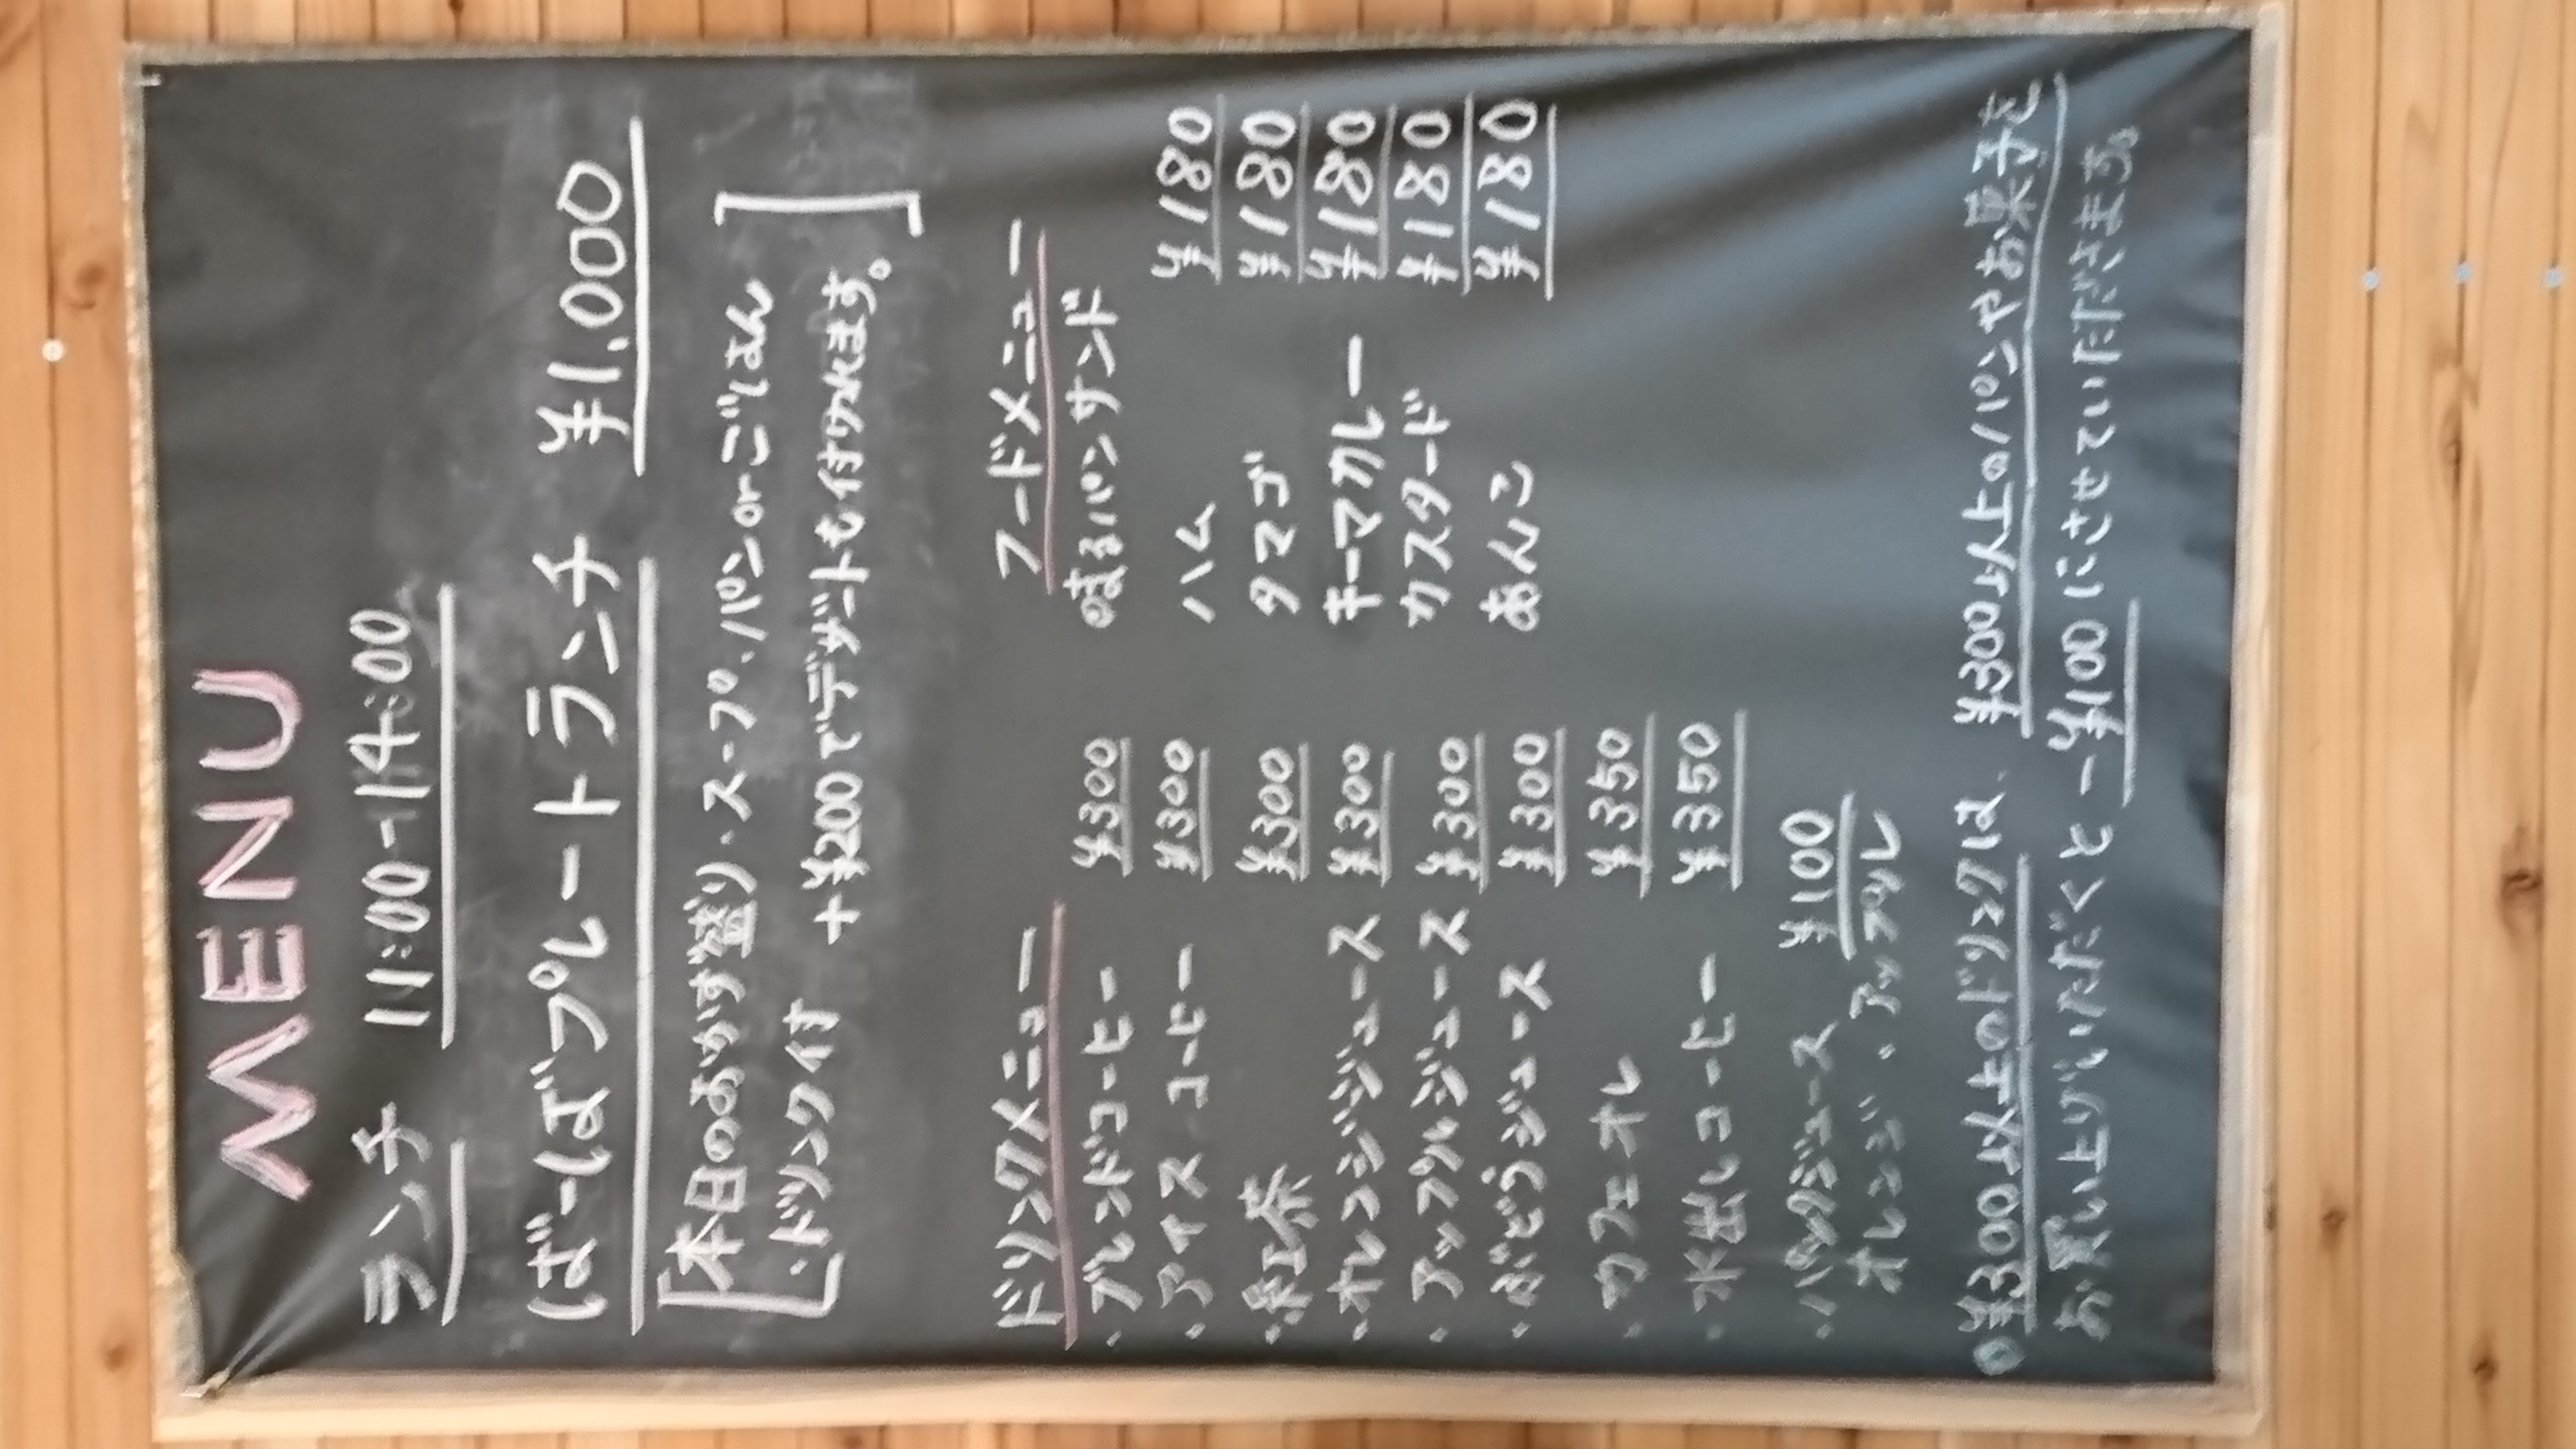 MENU
ランチ 11:00-14:00
ばーばプレートランチ ¥1,000
[本日のおかず盛り・スープ、パンorごはん
・ドリンク付 +¥200でデザートも付けれます。]
ドリンクメニュー
・ブレンドコーヒー ¥300
・アイスコーヒー ¥300
・紅茶 ¥300
・オレンジジュース ¥300
・アップルジュース ¥300
・ぶどうジュース ¥300
・カフェオレ ¥350
・水出しコーヒー ¥350
・パックジュース ¥100
オレンジ、アップル
フードメニュー
のまるパンサンド
ハム ¥180
タマゴ ¥180
キーマカレー ¥180
カスタード ¥180
あんこ ¥180
○¥300以上のドリンクは、¥300以上のパンやお菓子を
お買い上げいただくと -¥100にさせていただだきます。